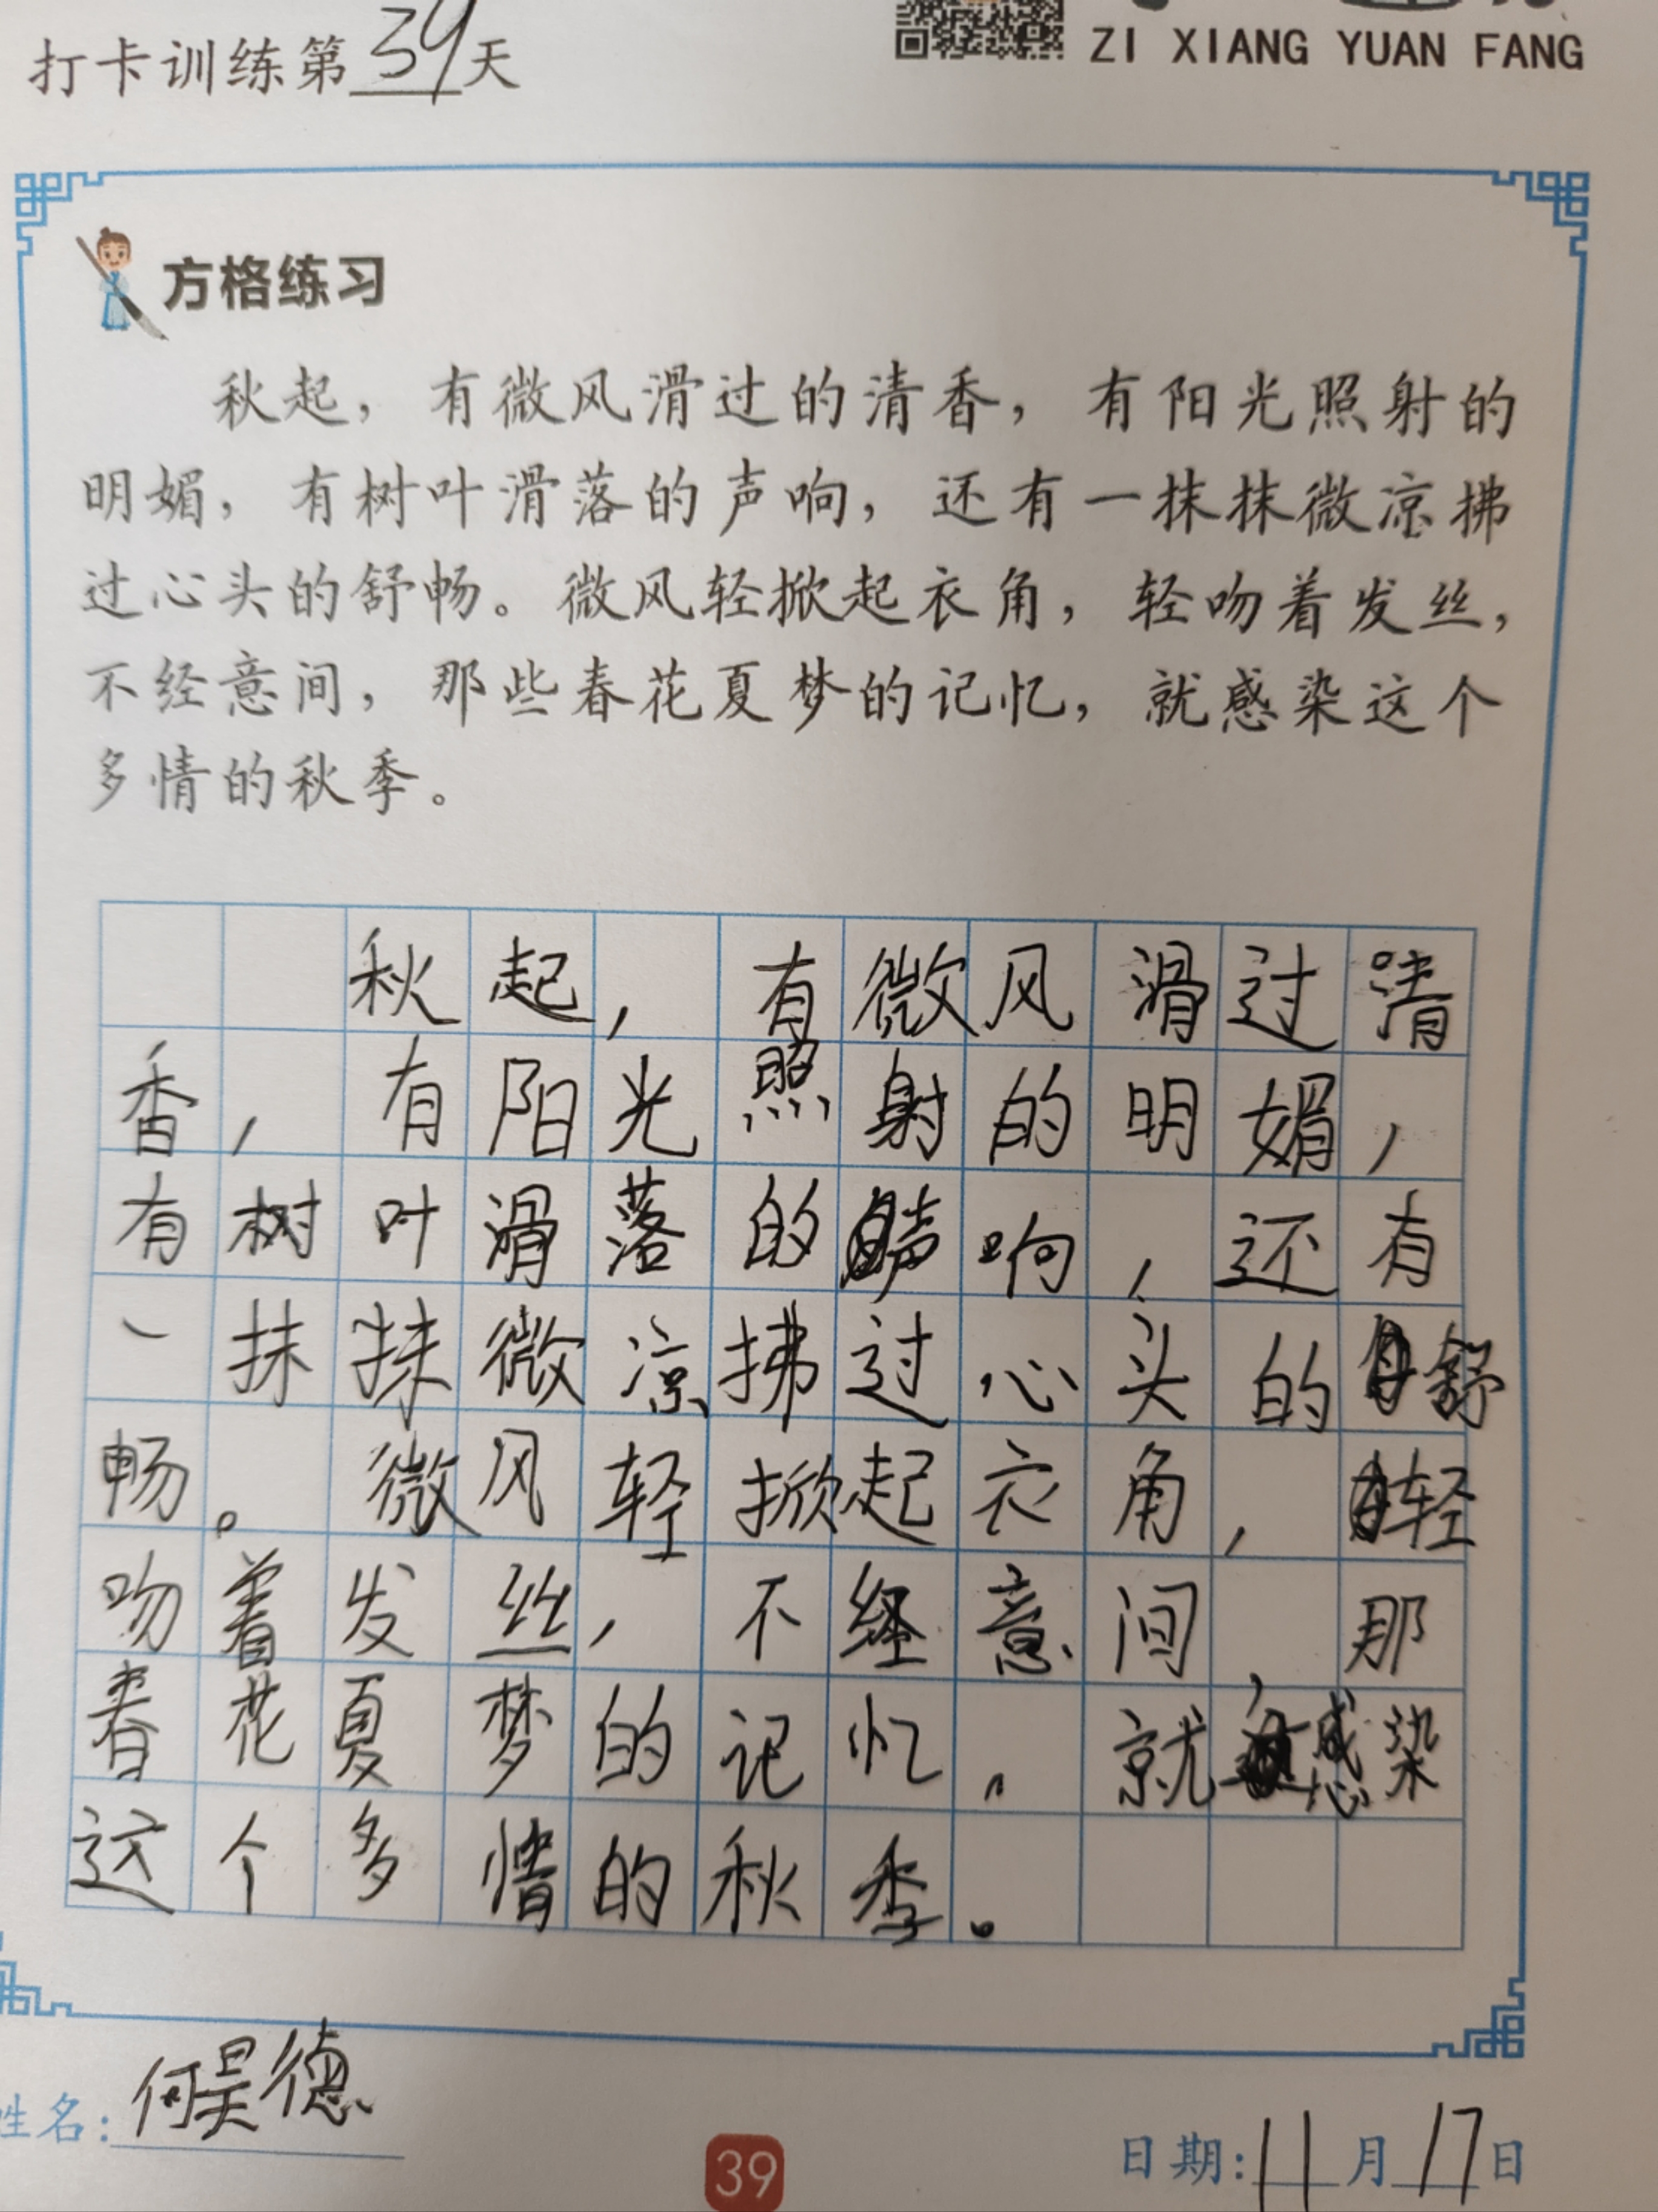 打卡训练第39天
ZI XIANG YUAN FANG
方格练习
秋起，有微风滑过的清香，有阳光照射的
明媚，有树叶滑落的声响，还有一抹抹微凉拂
过心头的舒畅。微风轻掀起衣角，轻吻着发丝，
不经意间，那些春花夏梦的记忆，就感染这个
多情的秋季。
秋起，有微风滑过清
香，有阳光照射的明媚，
有树叶滑落的声响，还有
一抹抹微凉拂过心头的舒
畅。微风轻掀起衣角，轻
吻着发丝，不经意间，那
春花夏梦的记忆，就感染
这个多情的秋季。
姓名：何昊德
39
日期：11月17日